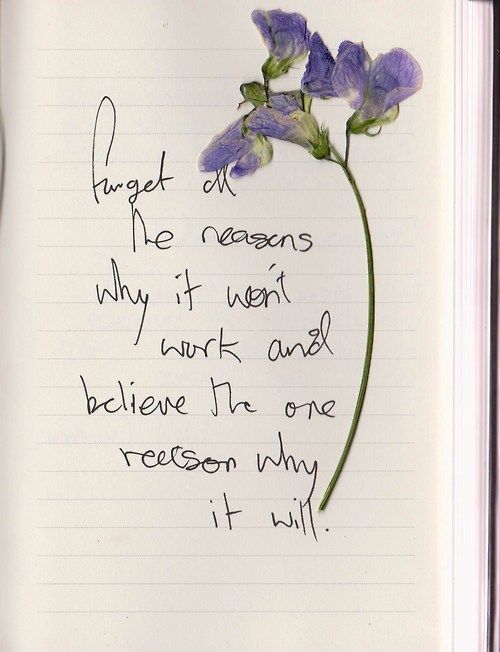 forget all
the reasons
why it won't
work and
believe the one
reason why
it will.